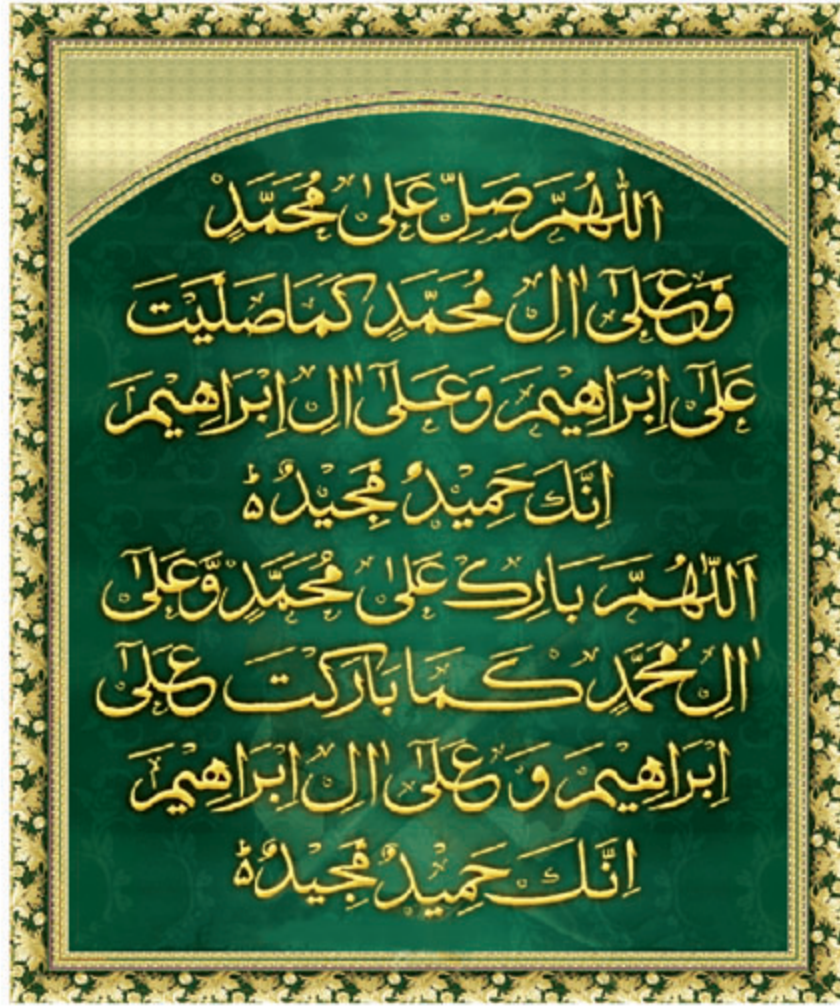 اَللّٰهُمَّ صَلِّ عَلٰى مُحَمَّدٍ
وَّعَلٰٓى اٰلِ مُحَمَّدٍ كَمَا صَلَّيْتَ
عَلٰٓى اِبْرَاهِيْمَ وَعَلٰٓى اٰلِ اِبْرَاهِيْمَ
اِنَّكَ حَمِيْدٌ مَّجِيْدٌ ؕ
اَللّٰهُمَّ بَارِكْ عَلٰى مُحَمَّدٍ وَّعَلٰٓى
اٰلِ مُحَمَّدٍ كَمَا بَارَكْتَ عَلٰٓى
اِبْرَاهِيْمَ وَعَلٰٓى اٰلِ اِبْرَاهِيْمَ
اِنَّكَ حَمِيْدٌ مَّجِيْدٌ ؕ